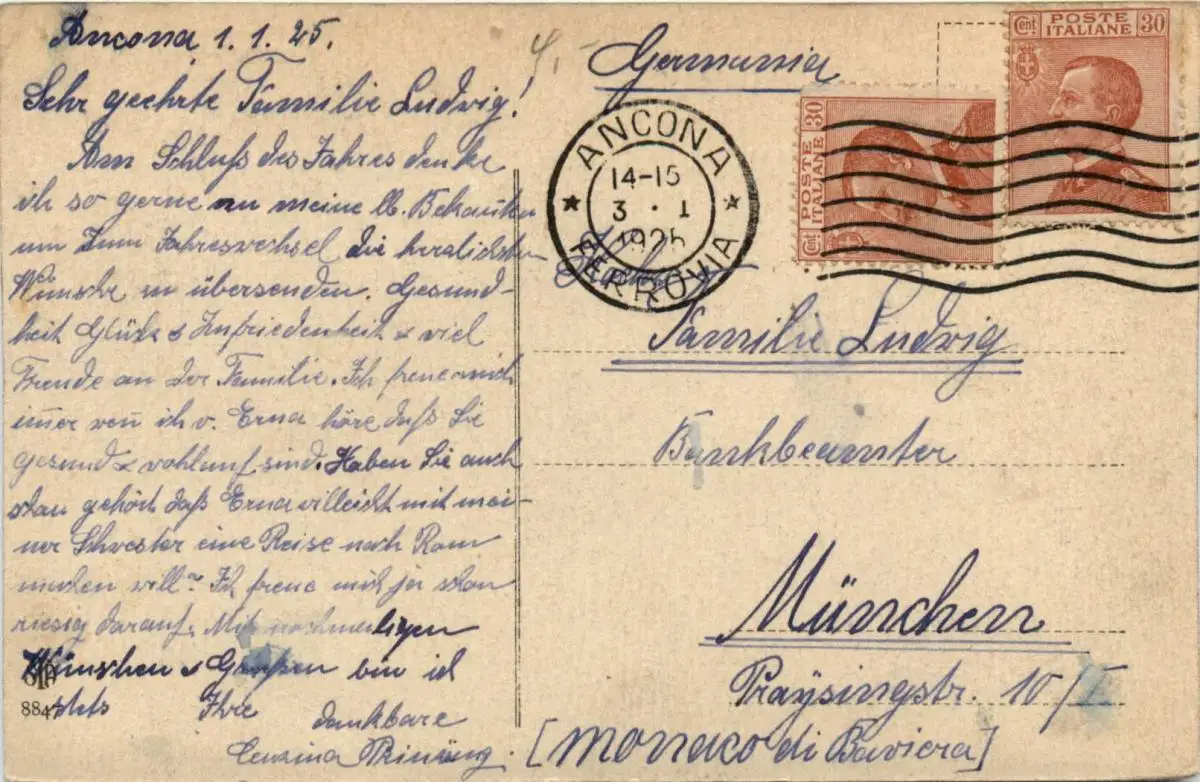 Ancona 1.1.25.
Sehr geehrte Familie Ludwig!
Am Schluß des Jahres denke
ich so gerne an meine lb. Bekannten
um zum Jahreswechsel die herzlichsten
Wünsche zu übersenden. Gesund-
heit Glück & Zufriedenheit & viel
Freude an der Familie. Ich freue mich
im̄er wen ich v. Erna höre daß Sie
gesund & wohlauf sind. Haben Sie auch
schon gehört daß Erna villeicht mit mei-
ner Schwester eine Reise nach Rom
machen will? Ich freue mich ja schon
riesig darauf. Mit nochmaligen
Wünschen & Grüßen bin ich
stets Ihre
dankbare
8847
4.-
Germania
POSTE ITALIANE
Cent 30
POSTE ITALIANE
Cent 30
ANCONA
14-15
3 · I
1925
FERROVIA
Familie Ludwig
Bankbeamter
München
Praysingstr. 10/I
[Monaco di Baviera]